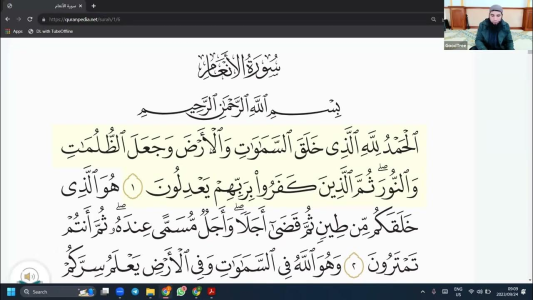 سورة الأنعام
https://quranpedia.net/surah/1/6
Apps
DL with TubeOffline
سُورَةُ الأَنْعَامِ
بِسْمِ اللَّهِ الرَّحْمَٰنِ الرَّحِيمِ
الْحَمْدُ لِلَّهِ الَّذِي خَلَقَ السَّمَاوَاتِ وَالْأَرْضَ وَجَعَلَ الظُّلُمَاتِ
وَالنُّورَ ۖ ثُمَّ الَّذِينَ كَفَرُوا بِرَبِّهِمْ يَعْدِلُونَ ١ هُوَ الَّذِي
خَلَقَكُم مِّن طِينٍ ثُمَّ قَضَىٰ أَجَلًا ۖ وَأَجَلٌ مُّسَمًّى عِندَهُ ۖ ثُمَّ أَنتُمْ
تَمْتَرُونَ ٢ وَهُوَ اللَّهُ فِي السَّمَاوَاتِ وَفِي الْأَرْضِ يَعْلَمُ سِرَّكُمْ
Search
ENG
09:09
2023/09/24